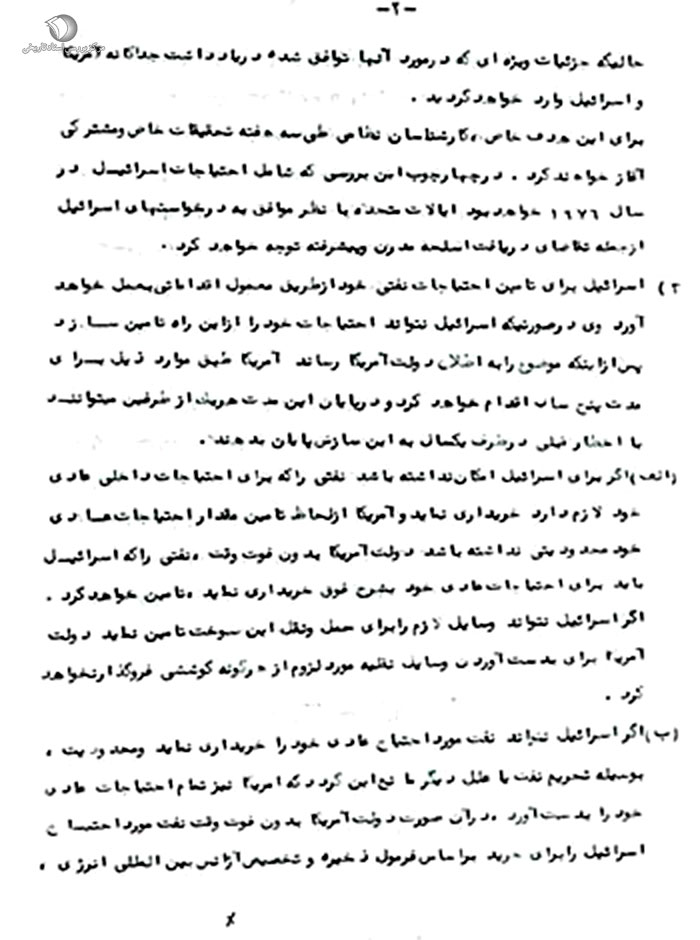 -۲-
مرکز بررسی اسناد تاریخی
حالیکه جزئیات ویژه ای که درمورد آنها توافق شده دریادداشت جداگانه آمریکا
و اسرائیل وارد خواهدگردید .
برای این هدف خاص ،کارشناسان نظامی طی سه هفته تحقیقات خاص ومشترکی
آغاز خواهندکرد . درچهارچوب این بررسی که شامل احتیاجات اسرائیل در
سال ۱۹۷۶ خواهدبود ایالات متحده با نظر موافق به درخواستهای اسرائیل
ازجمله تقاضای دریافت اسلحه مدرن وپیشرفته توجه خواهد کرد .
۳) اسرائیل برای تامین احتیاجات نفتی خود ازطریق معمول اقداماتی بعمل خواهد
آورد وی درصورتیکه اسرائیل نتواند احتیاجات خود را ازاین راه تامین سازد
پس ازاینکه موضوع رابه اطلاع دولت آمریکا رساند آمریکا طبق موارد ذیل برای
مدت پنج سال اقدام خواهد کرد و درپایان این مدت هریک از طرفین میتوانند
با اخطار قبلی درظرف یکسال به این سازش پایان بدهند .
(الف) اگر برای اسرائیل امکان نداشته باشد نفتی راکه برای احتیاجات داخلی عادی
خود لازم دارد خریداری نماید و آمریکا ازلحاظ تامین مقدار احتیاجات عادی
خود محدودیتی نداشته باشد دولت آمریکا بدون فوت وقت ،نفتی راکه اسرائیل
باید برای احتیاجات عادی خود بشرح فوق خریداری نماید ،تامین خواهدکرد .
اگر اسرائیل نتواند وسایل لازم رابرای حمل ونقل این سوخت تامین نماید دولت
آمریکا برای بدست آوردن وسایل نقلیه مورد لزوم از هرگونه کوششی فروگذار نخواهد
کرد .
(ب) اگر اسرائیل نتواند نفت مورد احتیاج عادی خود را خریداری نماید ومحدودیت ،
بوسیله تحریم نفت یا علل دیگر مانع این گردد که امریکا نیز تمام احتیاجات عادی
خود را بدست آورد ،درآن صورت دولت آمریکا بدون فوت وقت نفت مورد احتیاج
اسرائیل رابرای خرید براساس فرمول ذخیره و تخصیص آژانس بین المللی انرژی ،